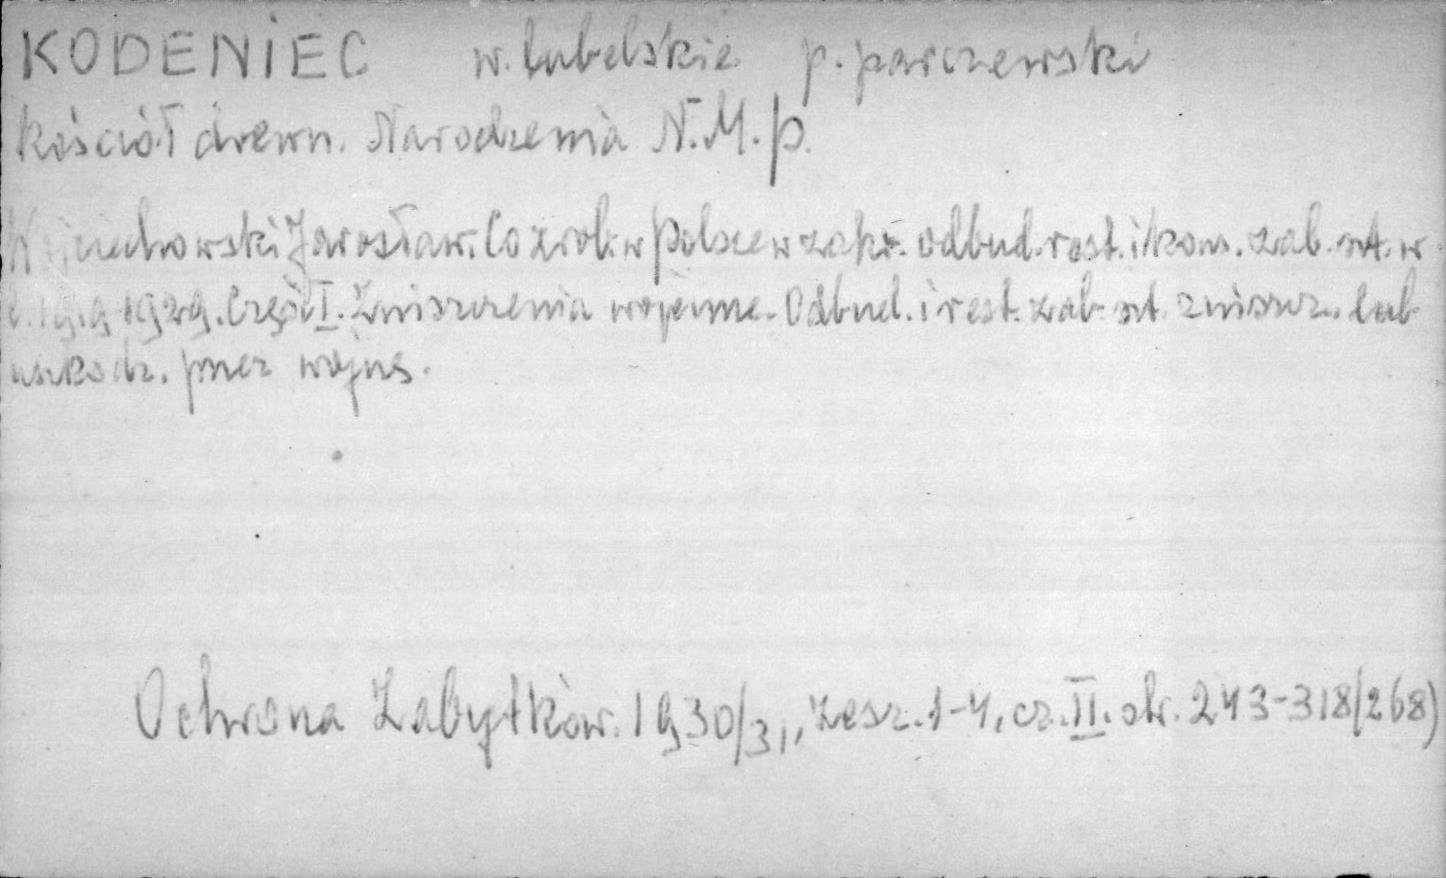 KODENIEC w. lubelskie p. parczewski
Kościół drewn. Narodzenia N.M.P.
Wojciechowski Jarosław. Co zrob. w Polsce w zakr. odbud. rest. i kons. zab. szt. w
l. 1919 1929. Część I. Zniszczenia wojenne. Odbud. i rest. zab. szt. zniszcz. lub
uszkodz. przez wojnę.
Ochrona Zabytków. 1930/31, zesz. 1-4, cz. II. str. 243-318 (268)